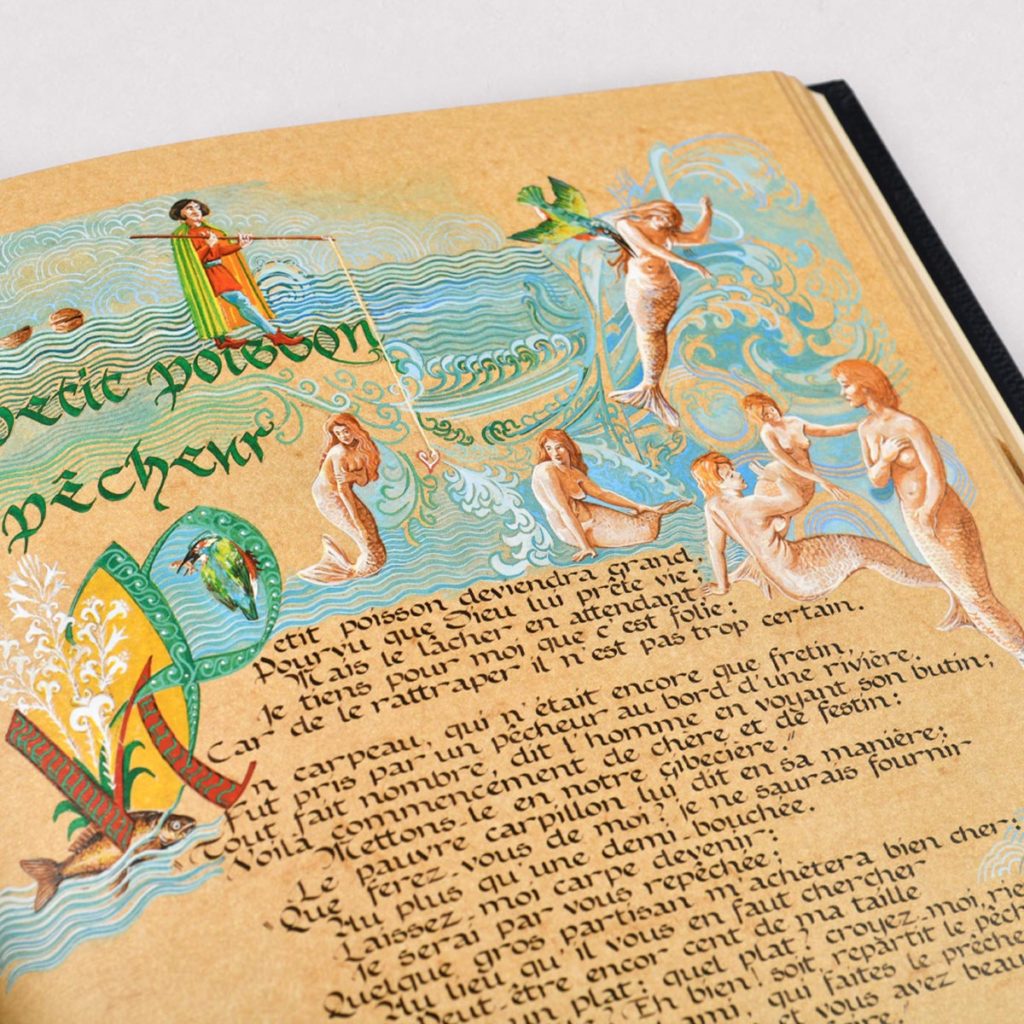 petit poisson
pêcheur
etit poisson deviendra grand,
Pourvu que Dieu lui prête vie;
Mais le lâcher en attendant,
Je tiens pour moi que c'est folie:
Car de le rattraper il n'est pas trop certain.
Un carpeau, qui n'était encore que fretin,
Fut pris par un pêcheur au bord d'une rivière.
Tout fait nombre, dit l'homme en voyant son butin;
Voilà commencement de chère et de festin:
Mettons-le en notre gibecière."
Le pauvre carpillon lui dit en sa manière:
"Que ferez-vous de moi? je ne saurais fournir
Au plus qu'une demi-bouchée.
Laissez-moi carpe devenir:
Je serai par vous repêchée;
Quelque gros partisan m'achètera bien cher:
Au lieu qu'il vous en faut chercher
Peut-être encor cent de ma taille
un plat: quel plat? croyez-moi, rie
? Eh bien! soit, repartit le pêch
ami, qui faites le prêche
et vous avez beau